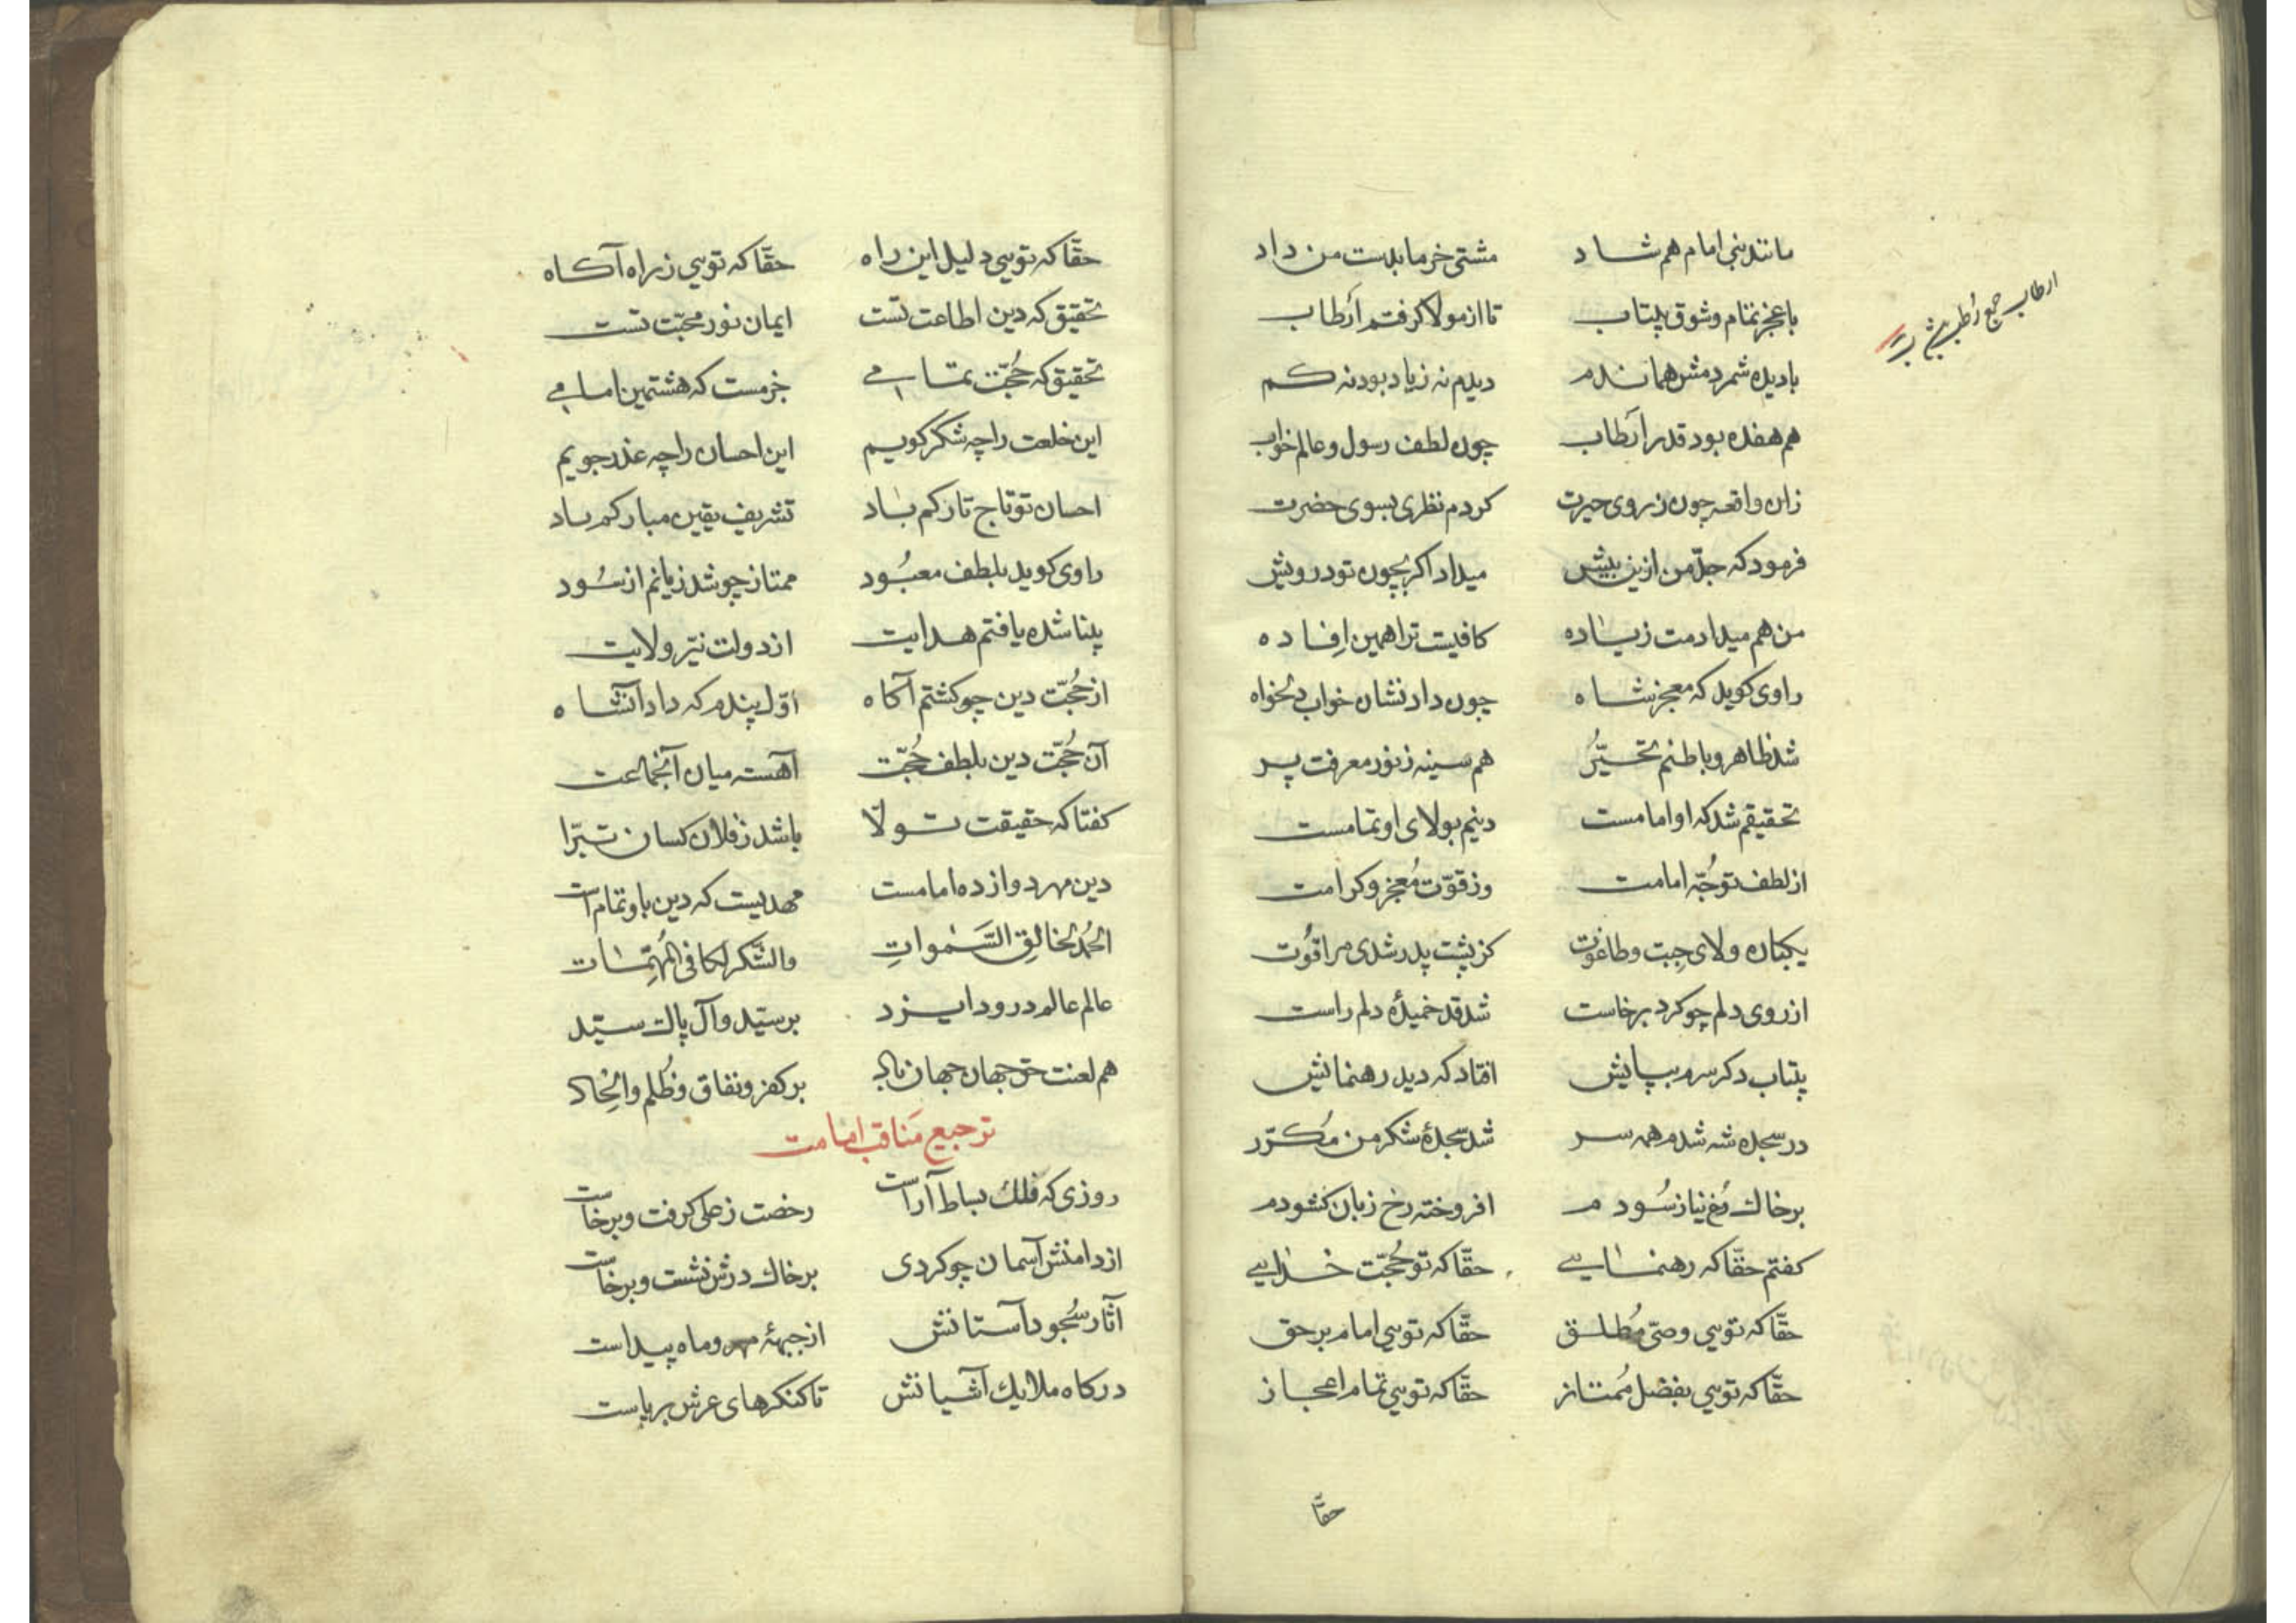 مانند نبی امام هم شاد مشتی خرما بدست من داد
با عجز تمام و شوق بیتاب تا از مولا گرفتم ارطاب
با دیده شمردمش هماندم دیدم نه زیاد بود نه کم
هم هفده بود قدر ارطاب چون لطف رسول و عالم خواب
زان واقعه چون ز روی حیرت کردم نظری بسوی حضرت
فرمود که جدّ من ازین بیش میداد اگر بچون تو درویش
من هم میدادمت زیاده کافیست ترا همین افاده
راوی کوید که معجز شاه چون داد نشان خواب دلخواه
شد ظاهر و باطنم تحیّر هم سینه ز نور معرفت پر
تحقیقم شد که او امامست دینم بولای او تمامست
از لطف توجّه امامت وز قوّت معجز و کرامت
یکباره ولای جبت و طاغوت کز پشت پدر شدی مرا قوت
از روی دلم چو کرد برخاست شد قد خمیدهٔ دلم راست
بیتاب دکر سرم بپایش افتاد که دید رهنمائیش
در سجده شه شدم همه سر شد سجدهٔ شکر من مکرّر
بر خاک رخ نیاز سودم افروخته رخ زبان کشودم
کفتم حقّا که رهنمایی حقّا که تو حُجّت خدایی
حقّا که تویی وصیّ مُطلق حقّا که تویی امام بر حق
حقّا که تویی بفضل مُمتاز حقّا که تویی تمام اعجاز
حقّا
ارطاب جمع رطب
حقّا که تویی دلیل این راه حقّا که تویی ز راه آکاه
تحقیق که دین اطاعت تست ایمان نور محبّت تست
تحقیق که حُجّت تمامی جزمست که هشتمین امامی
این خلعت را چه شکر کویم این احسان را چه عذر جویم
احسان تو تاج تارکم باد تشریف یقین مبارکم باد
راوی کوید بلطف معبُود ممتاز چو شد زیانم از سُود
بینا شده یافتم هدایت از دولت نیّر ولایت
از حُجّت دین چو کشتم آکاه اوّل پندم که داد آنشاه
آن حُجّت دین بلطف حُجّت آهسته میان آنجماعت
کفتا که حقیقت تولّا باشد ز فلان کسان تبرّا
دین مهر دوازده امامست مهدیست که دین باو تمام است
الحمدُ لخالِقِ السَّمواتِ والشّکر لکافی المُهِمّات
عالم عالم درود ایزد بر سیّد و آل پاک سیّد
هم لعنت حق جهان جهان باد بر کفر و نفاق و ظُلم و اِلحاد
ترجیع مَناقب امامت
روزی که فلک بساط آراست رخصت ز علی کرفت و برخاست
از دامنش آسمان چو کردی بر خاک درش نشست و برخاست
آثار سُجود آستانش از جبههٔ مهر و ماه پیداست
درکاه ملایک آشیانش تا کنکرهای عرش برپاست